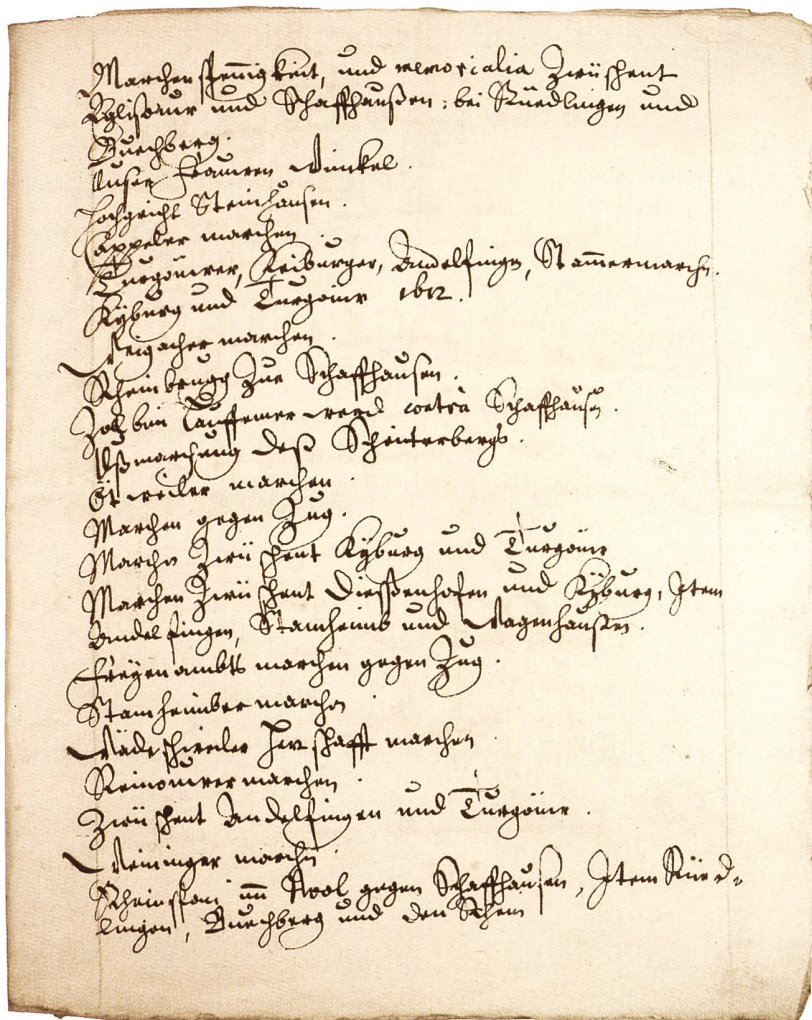 Marchenspennigkeit, und memorialia Zwüschent
Eglisauw und Schaffhaußen: bei Rüedlingen und
Buechberg.
Unser frauwen Winckel.
Hochgricht Steinhausen.
Cappeler marchen
Turgöuwer, Kiburger, Andelfinge, Stammermarchen.
Kyburg und Turgöuw 1612.
marchen.
Rheinbrugg Zue Schaffhausen.
Zoll bim Lauffemer werd contra Schaffhausen.
Ußmarchung deß Schenterbergs.
Etweiler marchen
Marchen gegen Zug.
Marchen Zwüschent Kyburg und Turgöuw
Marchen Zwüschent Dießenhofen und Kyburg, Item
Andelfingen, Stamheimb und Wagenhaußen.
Freyenambts marchen gegen Zug.
Stamheimber marchen
Wädeschweiler Herrschafft marchen
Rinouwer marchen
Zwüschent Andelfingen und Turgöuw.
Weininger marchen
Nool gegen Schaffhausen, Item Rüed-
lingen, Buechberg und den Rhein